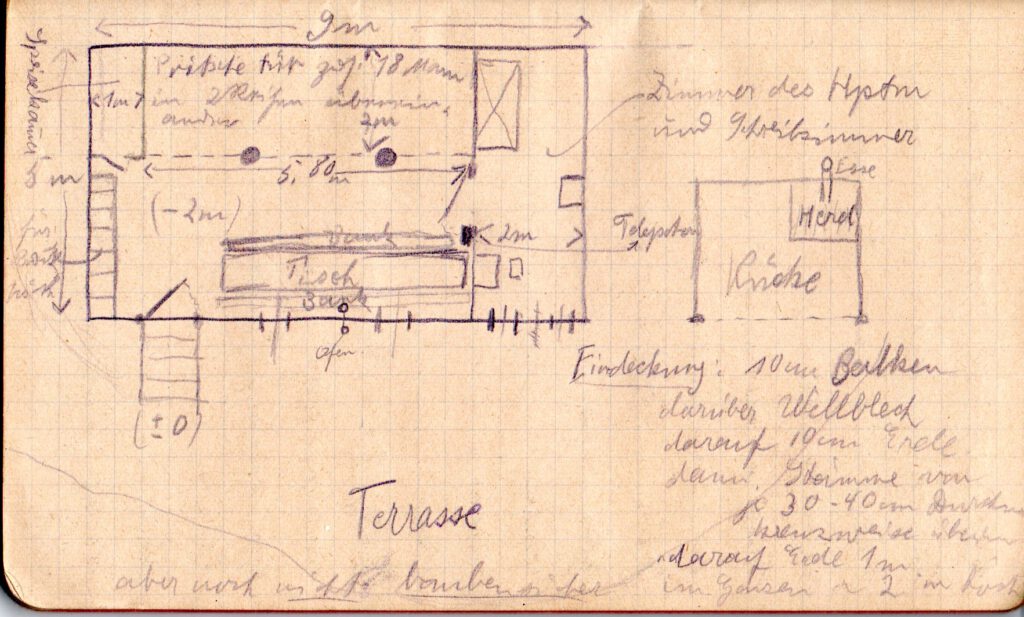 9m
Pritsche für zus. 18 Mann
in 2 Reihen überein-
ander
1m
2m
5 m
5,80m
(-2m)
2m
Bank
Tisch
Bank
Ofen
(± 0)
für
Zimmer des Hptm
und Schreibzimmer
Telephon
Esse
Herd
Küche
Eindeckung: 10cm Balken
darüber Wellblech
darauf 10cm Erde
dann Stämme von
je 30-40cm
kreuzweise
darauf Erde 1m
im Ganzen 2 m
Terrasse
aber noch nicht bombensicher